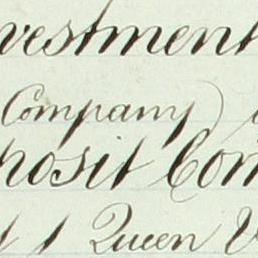 vestment
Company)
posit Com
Queen V